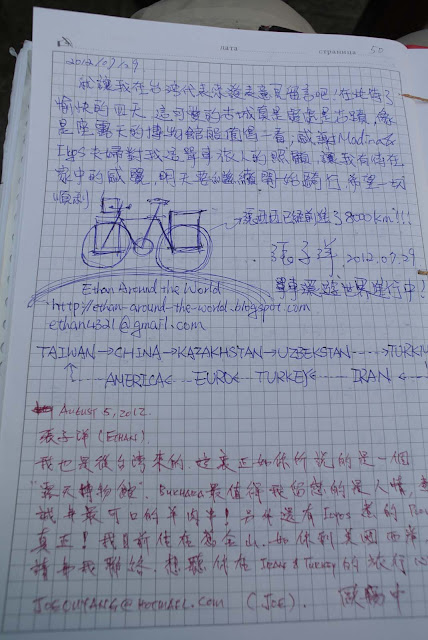 дата
страница 50
2012/07/29
就讓我在台灣代表來發表意見留言吧!在此待了
愉快的四天,這可愛的古城真是
是座露天的博物館般值得一看,感謝Madina &
夫婦對我這單車旅人的照顧,讓我有儅在
家中的感覺,明天要繼續開始騎行,希望一切
順利
已經前進了8000km!!!
張子洋 2012.07.29
單車環遊世界進行中!
Ethan Around the World
http://ethan-around-the-world.blogspot.com
ethan4321@gmail.com
TAIWAN→CHINA→KAZAKHSTAN→UZBEKSTAN----→TURKM
AMERICA←---EURO←---TURKEY←---IRAN←
August 5, 2012.
張子洋 (ETHAN)
我也是從台灣來的.這裏正如你所說的是一個
"露天博物館". BUKHARA最值得我留戀的是人情,
城中最可口的羊肉串!另外還有 家的
真正!我目前住在舊金山.如你到美國西岸,
請和我聯絡.想聽你在 IRAN & TURKEY的旅行心
JOEOUYANG@HOTMAIL.COM (JOE). 歐陽中